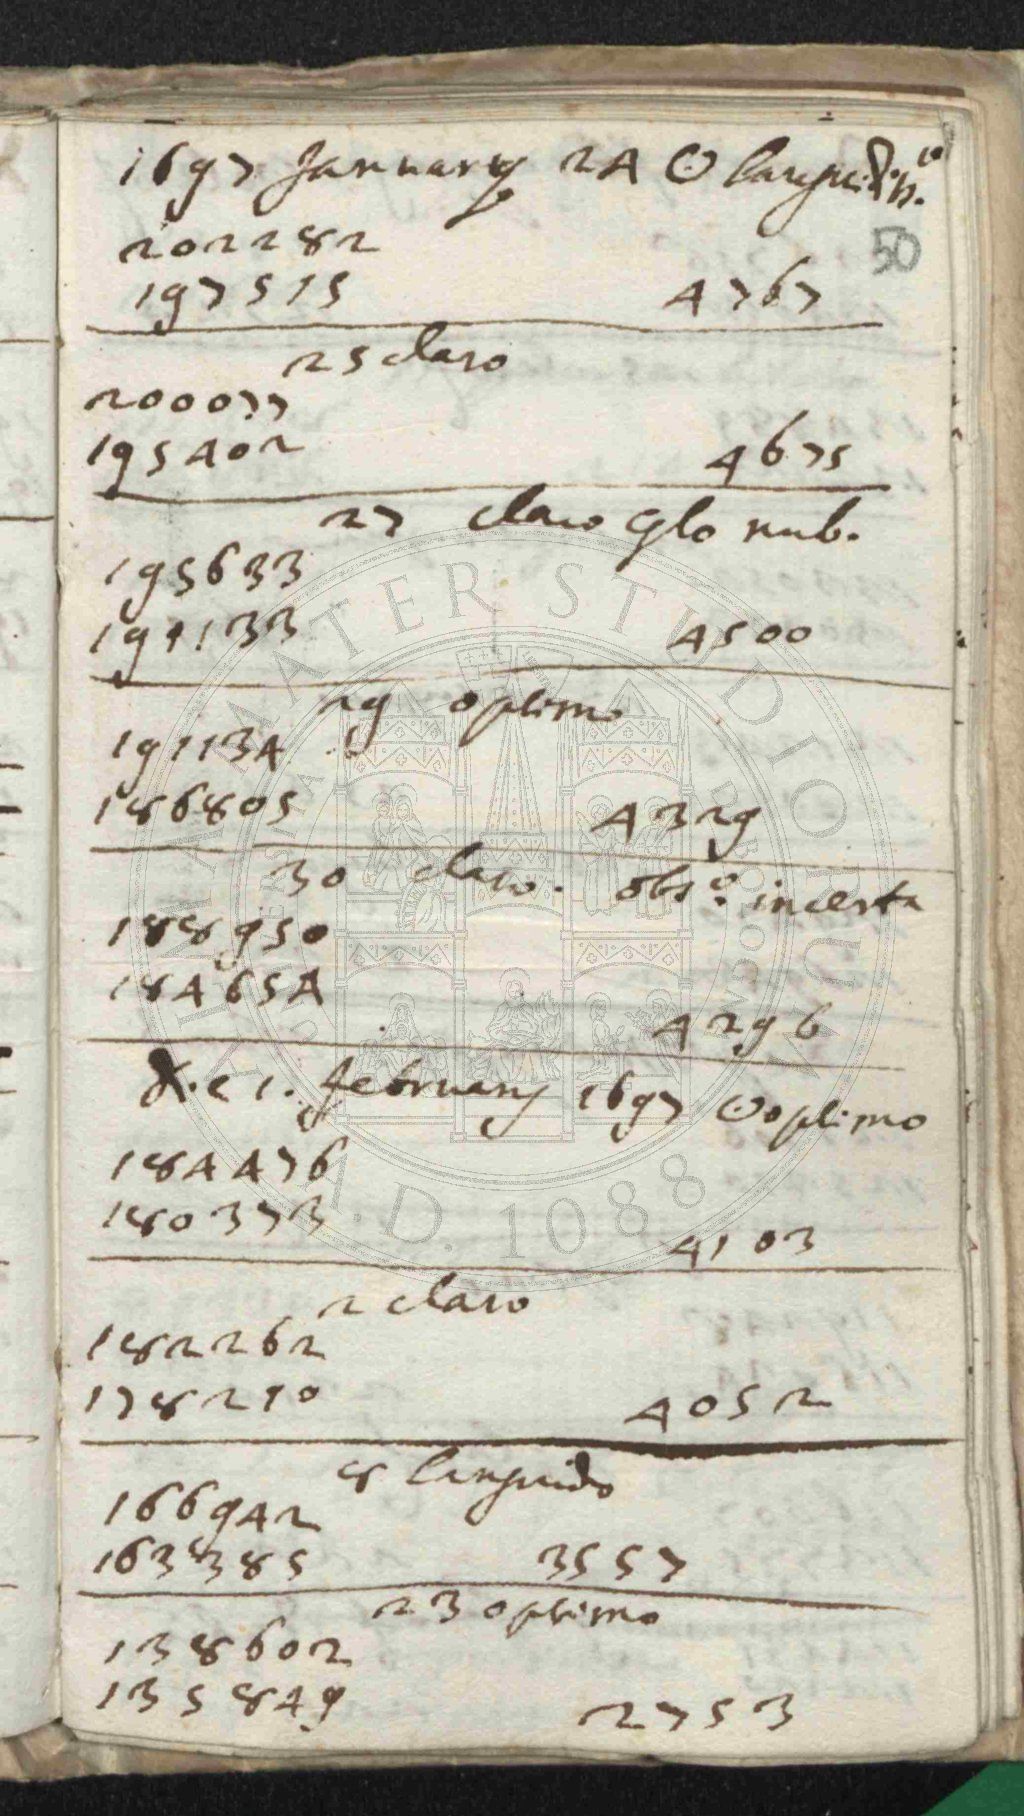 1697 January 24 ☉ languidiss.º
50
202282
197515 4767
25 claro
200077
195402 4675
27 claro cęlo nub.
195633
191133 4500
29 optimo
191134
186805 4329
30 claro. obs.º incerta
188950
184654
4296
1. february 1697 ☉ optimo
184476
180373
4103
2 claro
182262
178210 4052
8 languido
166942
163385 3557
23 optimo
138602
135849 2753
ALMA MATER STUDIORUM
A.D. 1088